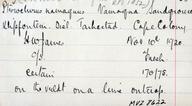 Pterocturus namaquus Namaqua Sandgrouse
Uppfontein. Dist. Tarkastad. Cape Colony
H.W. James Nov 10th 1920
c/3 Fresh
certain 170/75.
on the veldt on a lime outcrop.
MVZ 8622